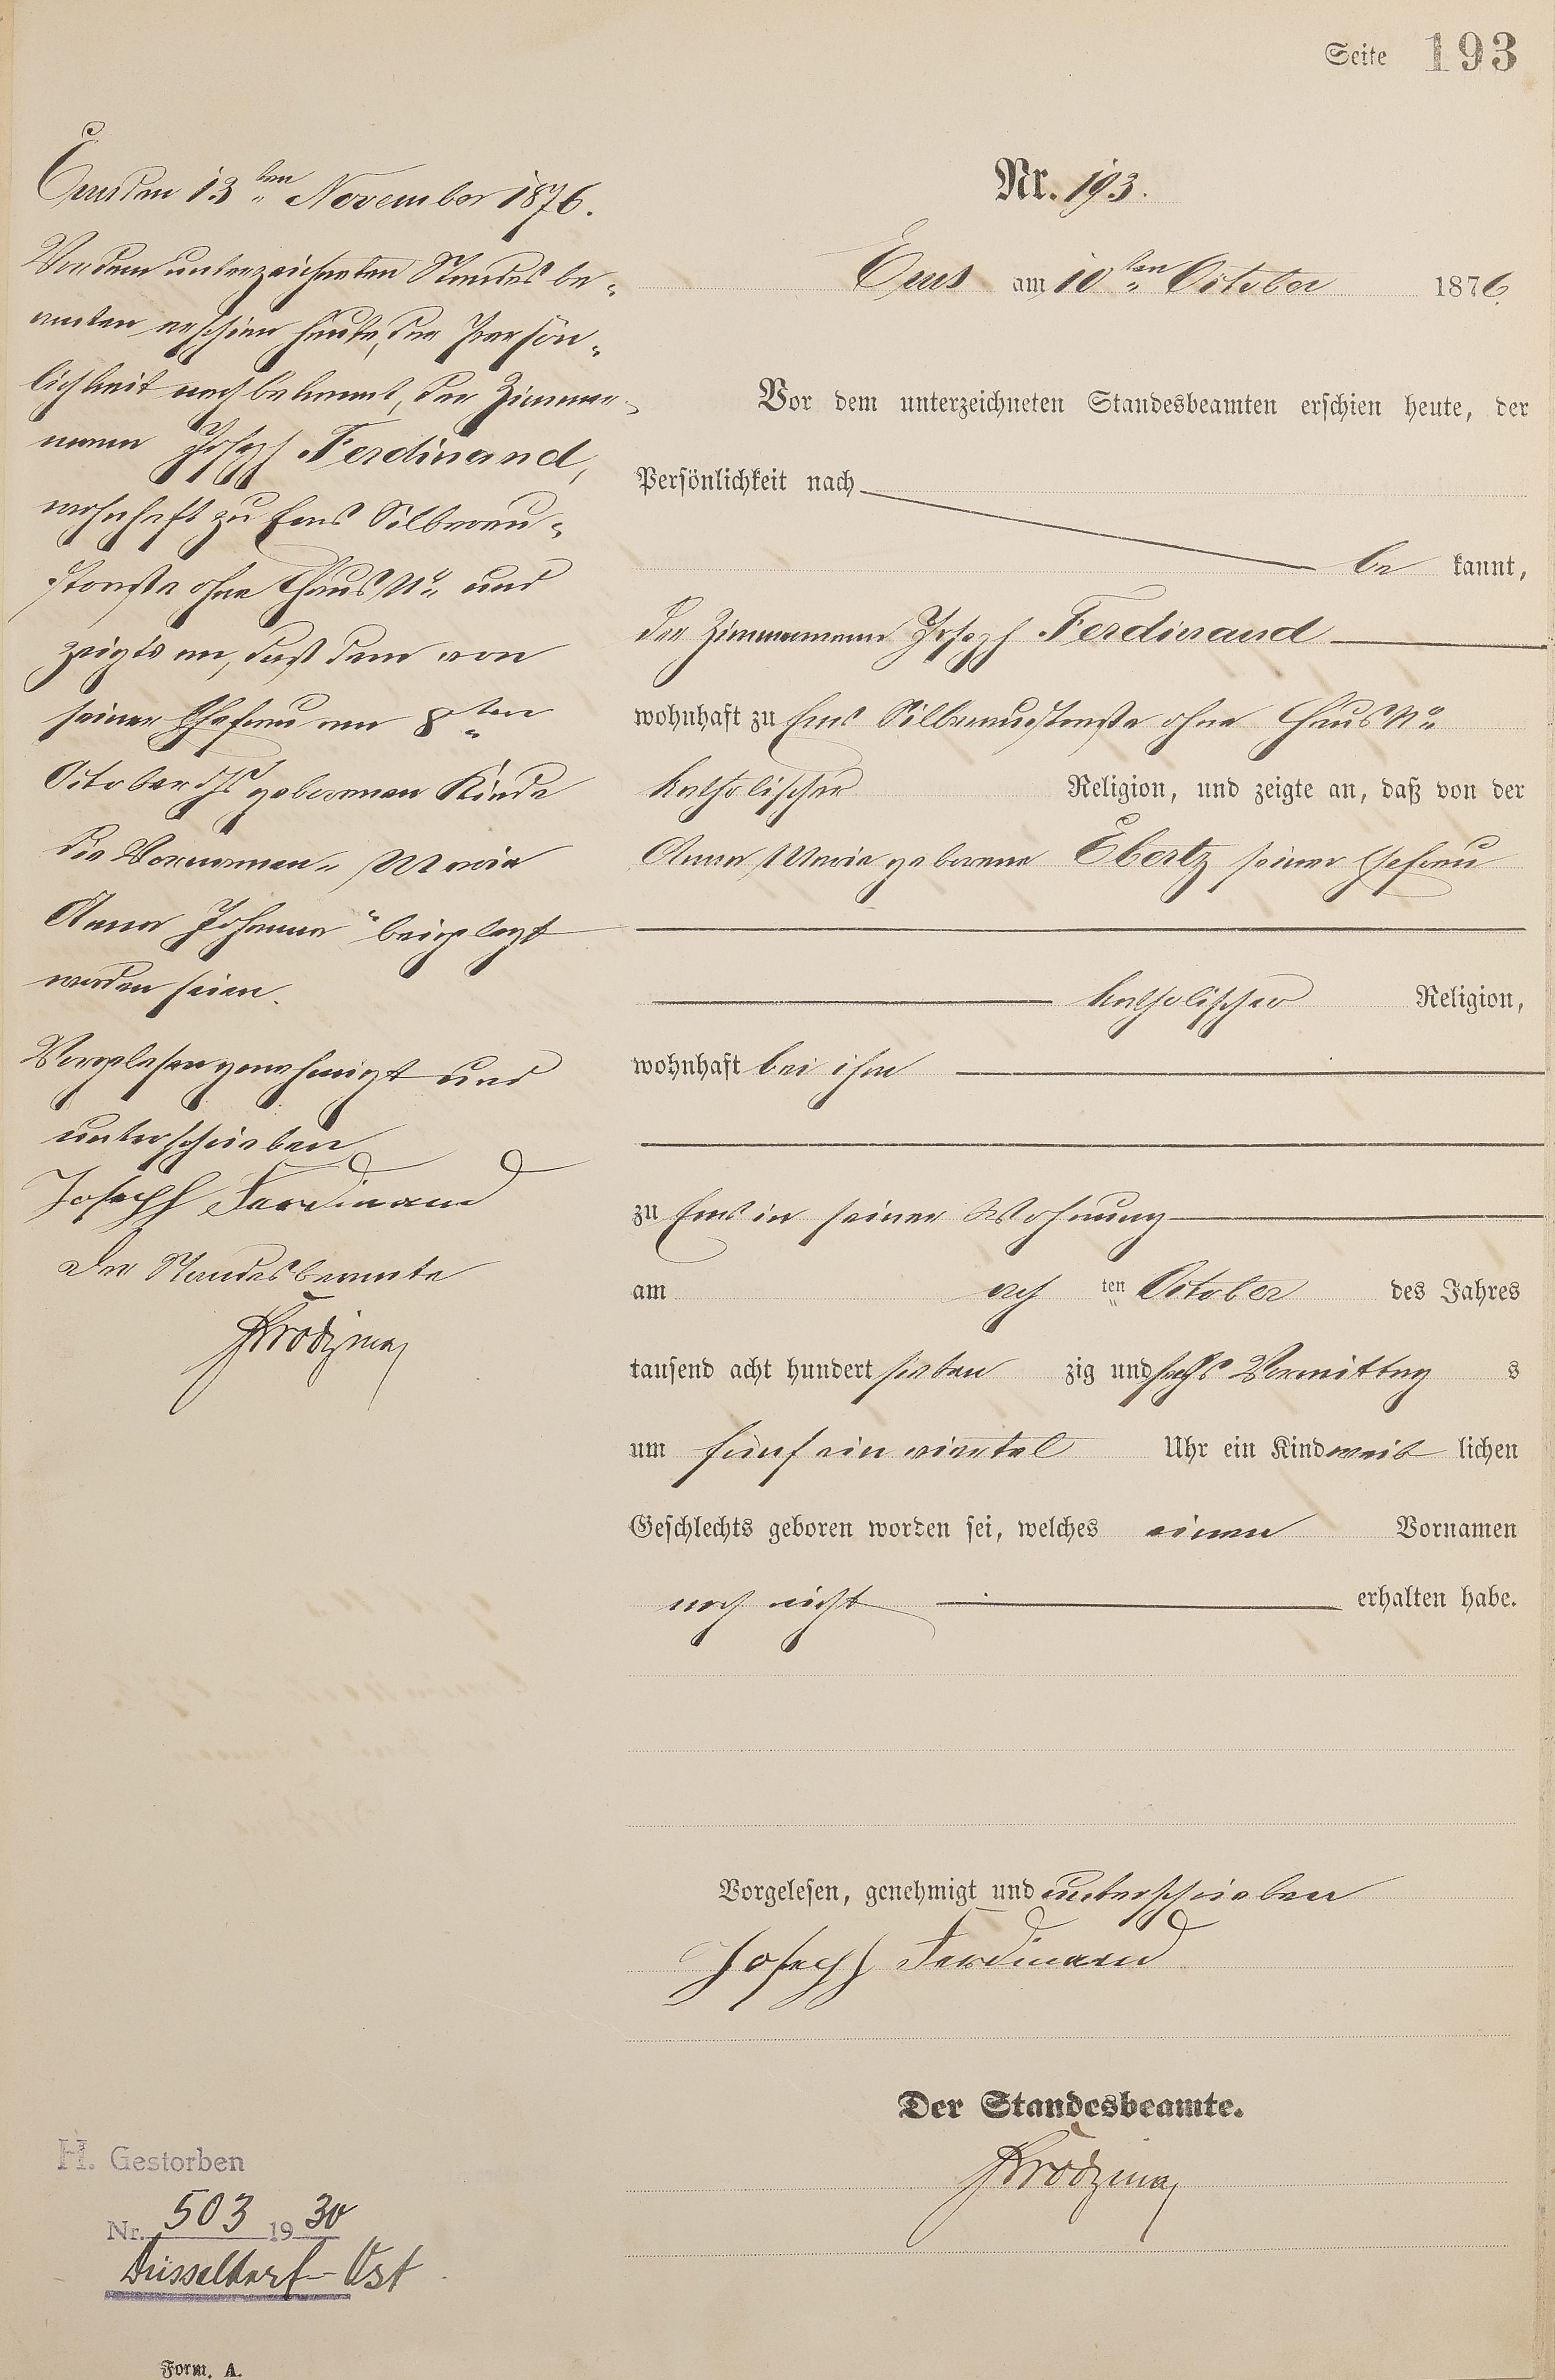 Seite 193
Nr. 193.
Ems am 10ten October 1876.
Vor dem unterzeichneten Standesbeamten erschien heute, der
Persönlichkeit nach
be kannt,
der Zimmermann Joseph Ferdinand
wohnhaft zu Ems Silberaustraße ohne Haus No
katholischer Religion, und zeigte an, daß von der
Anna Maria geborene Ebertz seiner Ehefrau
katholischer Religion,
wohnhaft bei ihm
zu Ems in seiner Wohnung
am ach ten October des Jahres
tausend acht hundert sieben zig und sechs Vormittag s
um fünf ein viertel Uhr ein Kind weib lichen
Geschlechts geboren worden sei, welches einen Vornamen
noch nicht erhalten habe.
Vorgelesen, genehmigt und unterschrieben
Joseph Ferdinand
Der Standesbeamte.
Ems den 13ten November 1876.
Vor dem unterzeichneten Standesbe-
amten erschien heute, der Persön-
lichkeit nach bekannt, der Zimmer-
mann Joseph Ferdinand,
wohnhaft zu Ems Silberau-
straße ohne Haus No und
zeigte an, daß dem von
seiner Ehefrau am 8ten
October ds geborenen Kinde
die Vornamen „Maria
Anna Johanna“ beigelegt
worden seien.
Vorgelesen genehmigt und
unterschrieben
Joseph Ferdinand
Der Standesbeamte
H. Gestorben
Nr. 503 1930
Düsseldorf-Ost
Form. A.